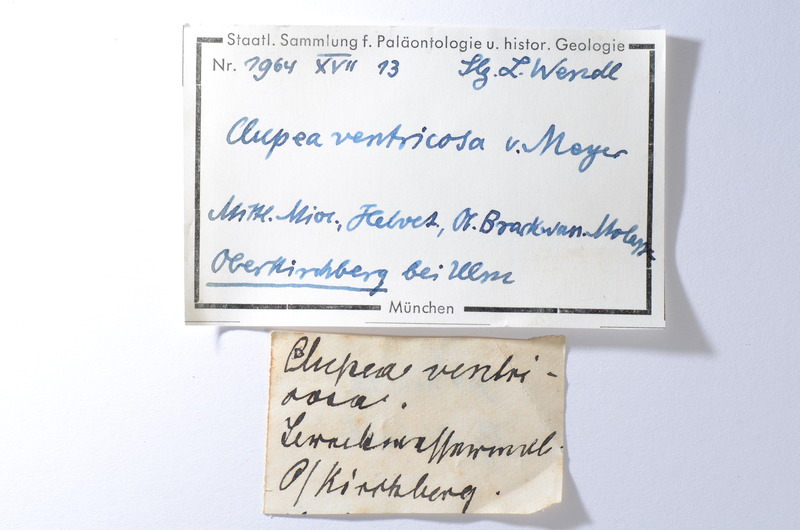 Staatl. Sammlung f. Paläontologie u. histor. Geologie
Nr. 1964 XVII 13 Slg. L. Wendl
Clupea ventricosa v. Meyer
Mittl. Mioc., Helvet, Ob. Brackwass. Molasse
Oberkirchberg bei Ulm
München
Clupea ventri-
cosa.
O/Kirchberg.